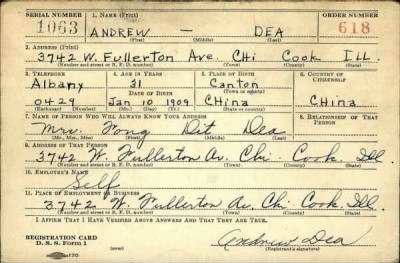 SERIAL NUMBER 1. NAME (Print) ORDER NUMBER
1063 ANDREW — DEA 618
(First) (Middle) (Last)
2. ADDRESS (Print)
3742 W. Fullerton Ave. Chi Cook Ill.
(Number and street or R. F. D. number) (Town) (County) (State)
3. TELEPHONE 4. AGE IN YEARS 5. PLACE OF BIRTH 6. COUNTRY OF CITIZENSHIP
Albany 31 Canton
DATE OF BIRTH (Town or county)
0424 Jan 10 1909 China China
(Exchange) (Number) (Mo.) (Day) (Yr.) (State or country)
7. NAME OF PERSON WHO WILL ALWAYS KNOW YOUR ADDRESS 8. RELATIONSHIP OF THAT PERSON
Mrs. Fong Dit Dea
(Mr., Mrs., Miss) (First) (Middle) (Last)
9. ADDRESS OF THAT PERSON
3742 W. Fullerton Av. Chi. Cook. Ill.
(Number and street or R. F. D. number) (Town) (County) (State)
10. EMPLOYER'S NAME
Self
11. PLACE OF EMPLOYMENT OR BUSINESS
3742 W. Fullerton Av. Chi Cook. Ill.
(Number and street or R. F. D. number) (Town) (County) (State)
I AFFIRM THAT I HAVE VERIFIED ABOVE ANSWERS AND THAT THEY ARE TRUE.
REGISTRATION CARD
D. S. S. Form 1 Andrew Dea
(Registrant's signature)